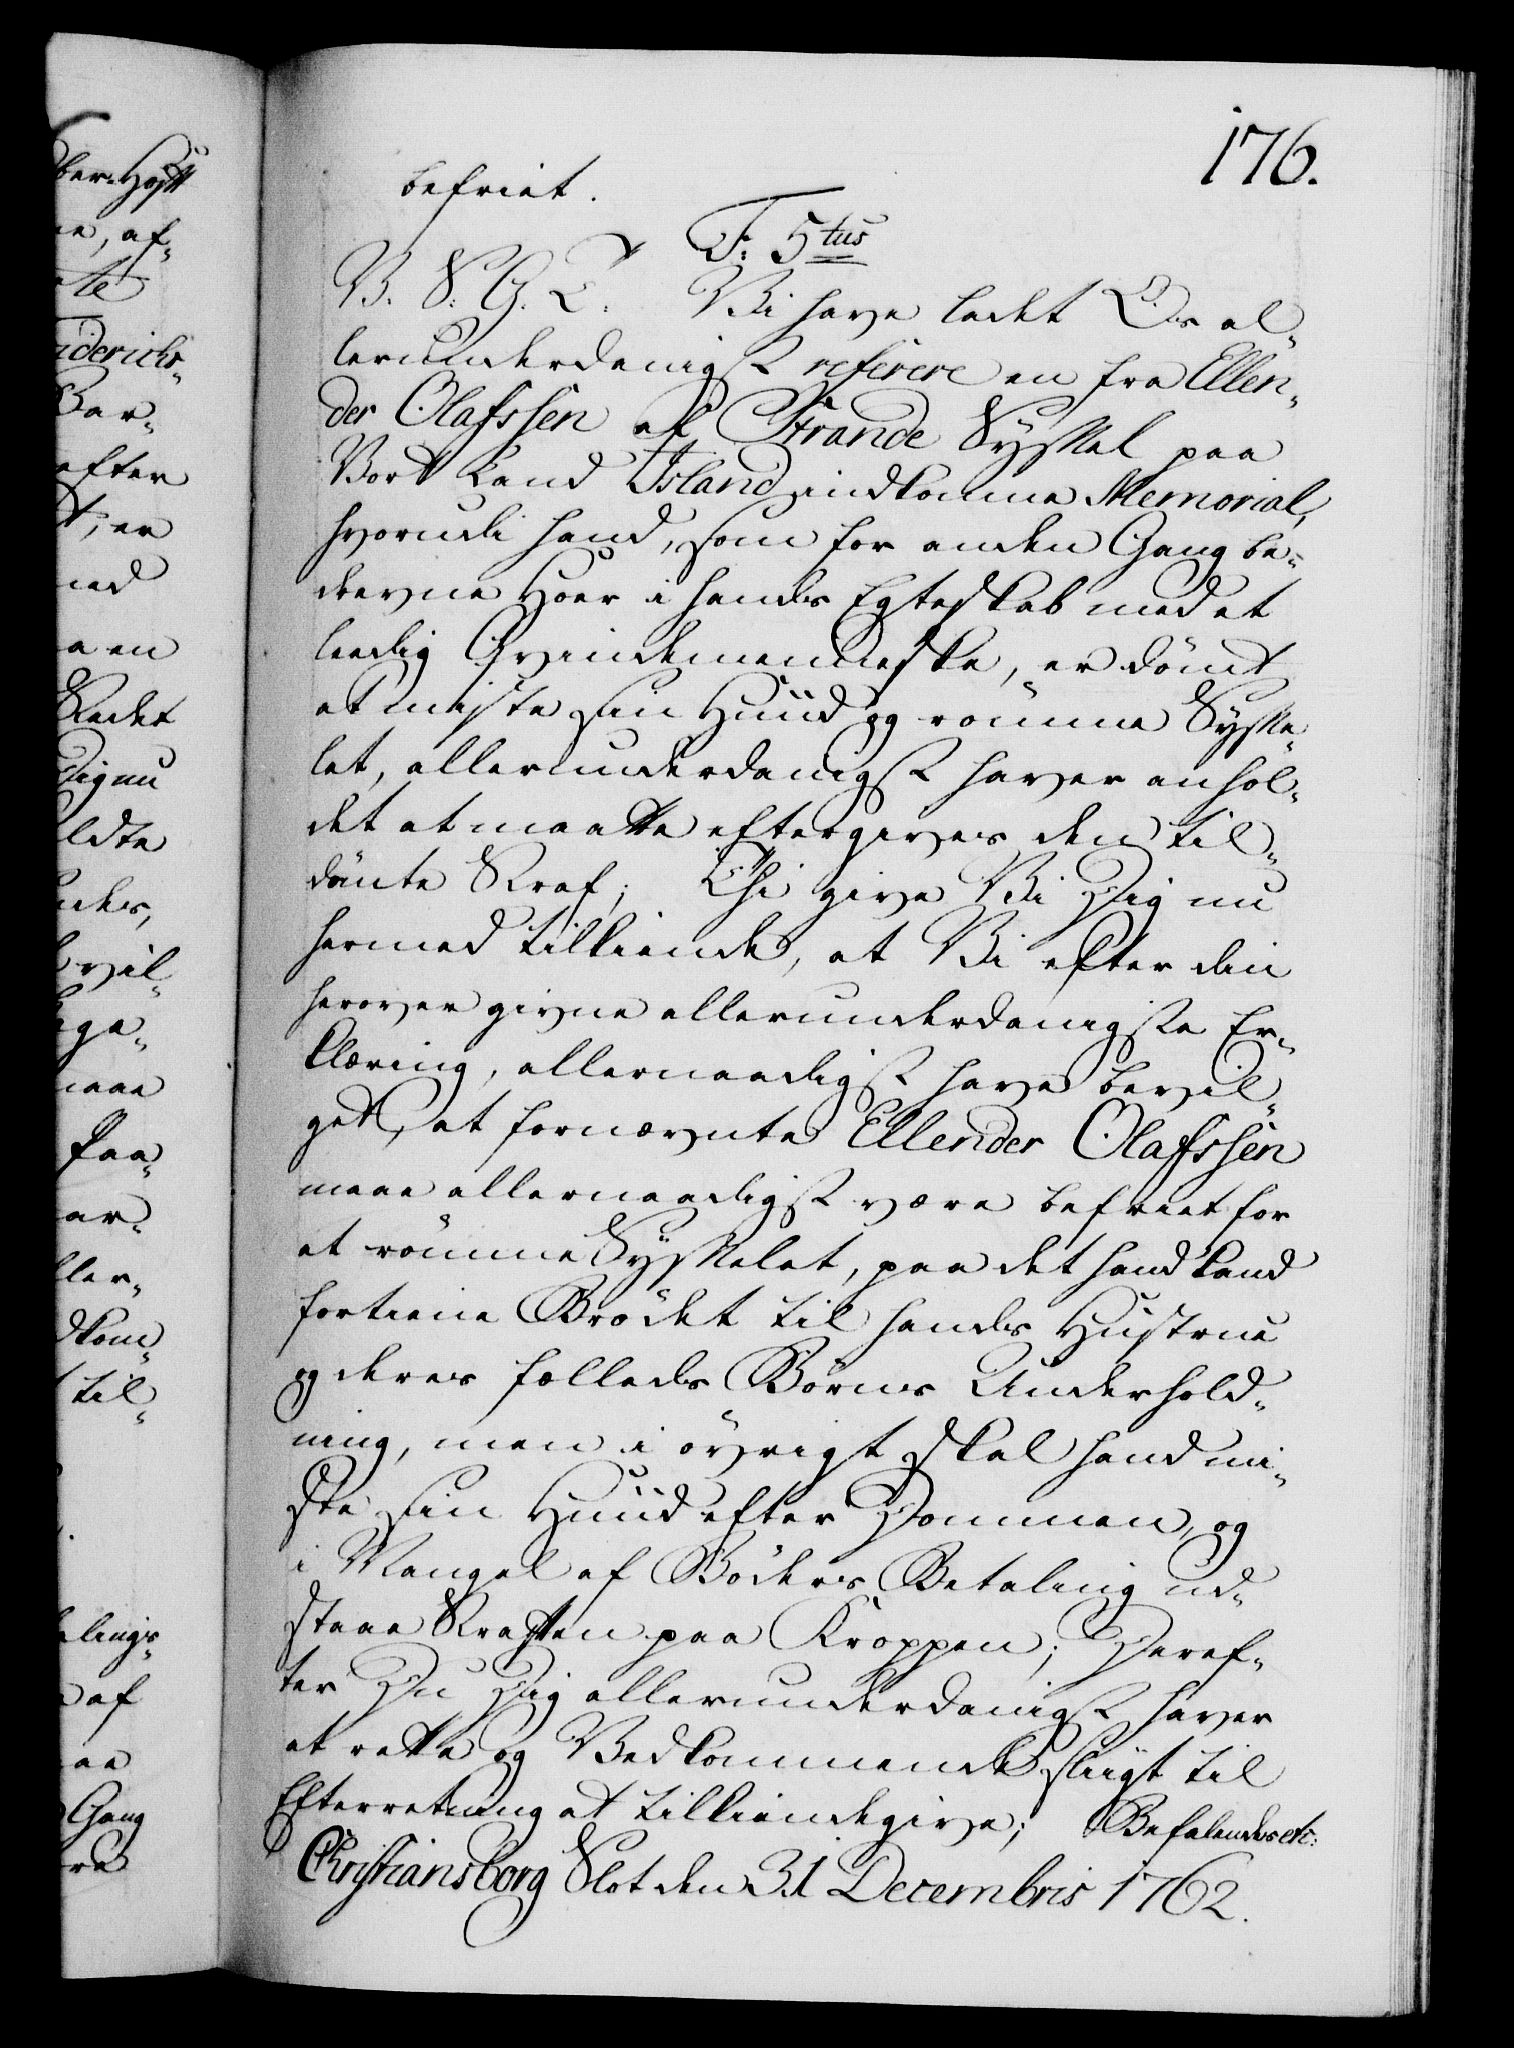 176.
befriet.
F: 5tus
V. S. G. T. Vi have ladet Os al-
lerunderdanigst referere en fra Ellen-
der Olafssen af Strande Syssel paa
Vort Land Island indkomne Memorial,
hvorudi hand, som for anden Gang be-
dreven Hoer i hands Egteskab med et
leedig Qvindemenneske, er dömt
at miste sin Huud og römme Sysse-
let, allerunderdanigst haver anhol-
det at maatte eftergives den til-
dömte Straf; Thi give Vi Dig nu
hermed tilkiende, at Vi efter din
herover givne allerunderdanigste Er-
klæring, allernaadigst have bevil-
get, at fornævnte Ellender Olafssen
maae allernaadigst være befriet for
at römme Sysselet, paa det hand kand
fortiene Brödet til hands Hustrue
og deres fælleds Börns Underhold-
ning, men i övrigt skal hand mi-
ste sin Huud efter Dommen, og
i Mangel af Böders Betaling ud-
staae Straffen paa Kroppen; Deref-
ter Du Dig allerunderdanigst haver
at rette og Vedkommende sligt til
Efterretning at tilkiendegive; Befalendes etc:
Christiansborg Slot den 31 Decembris 1762.